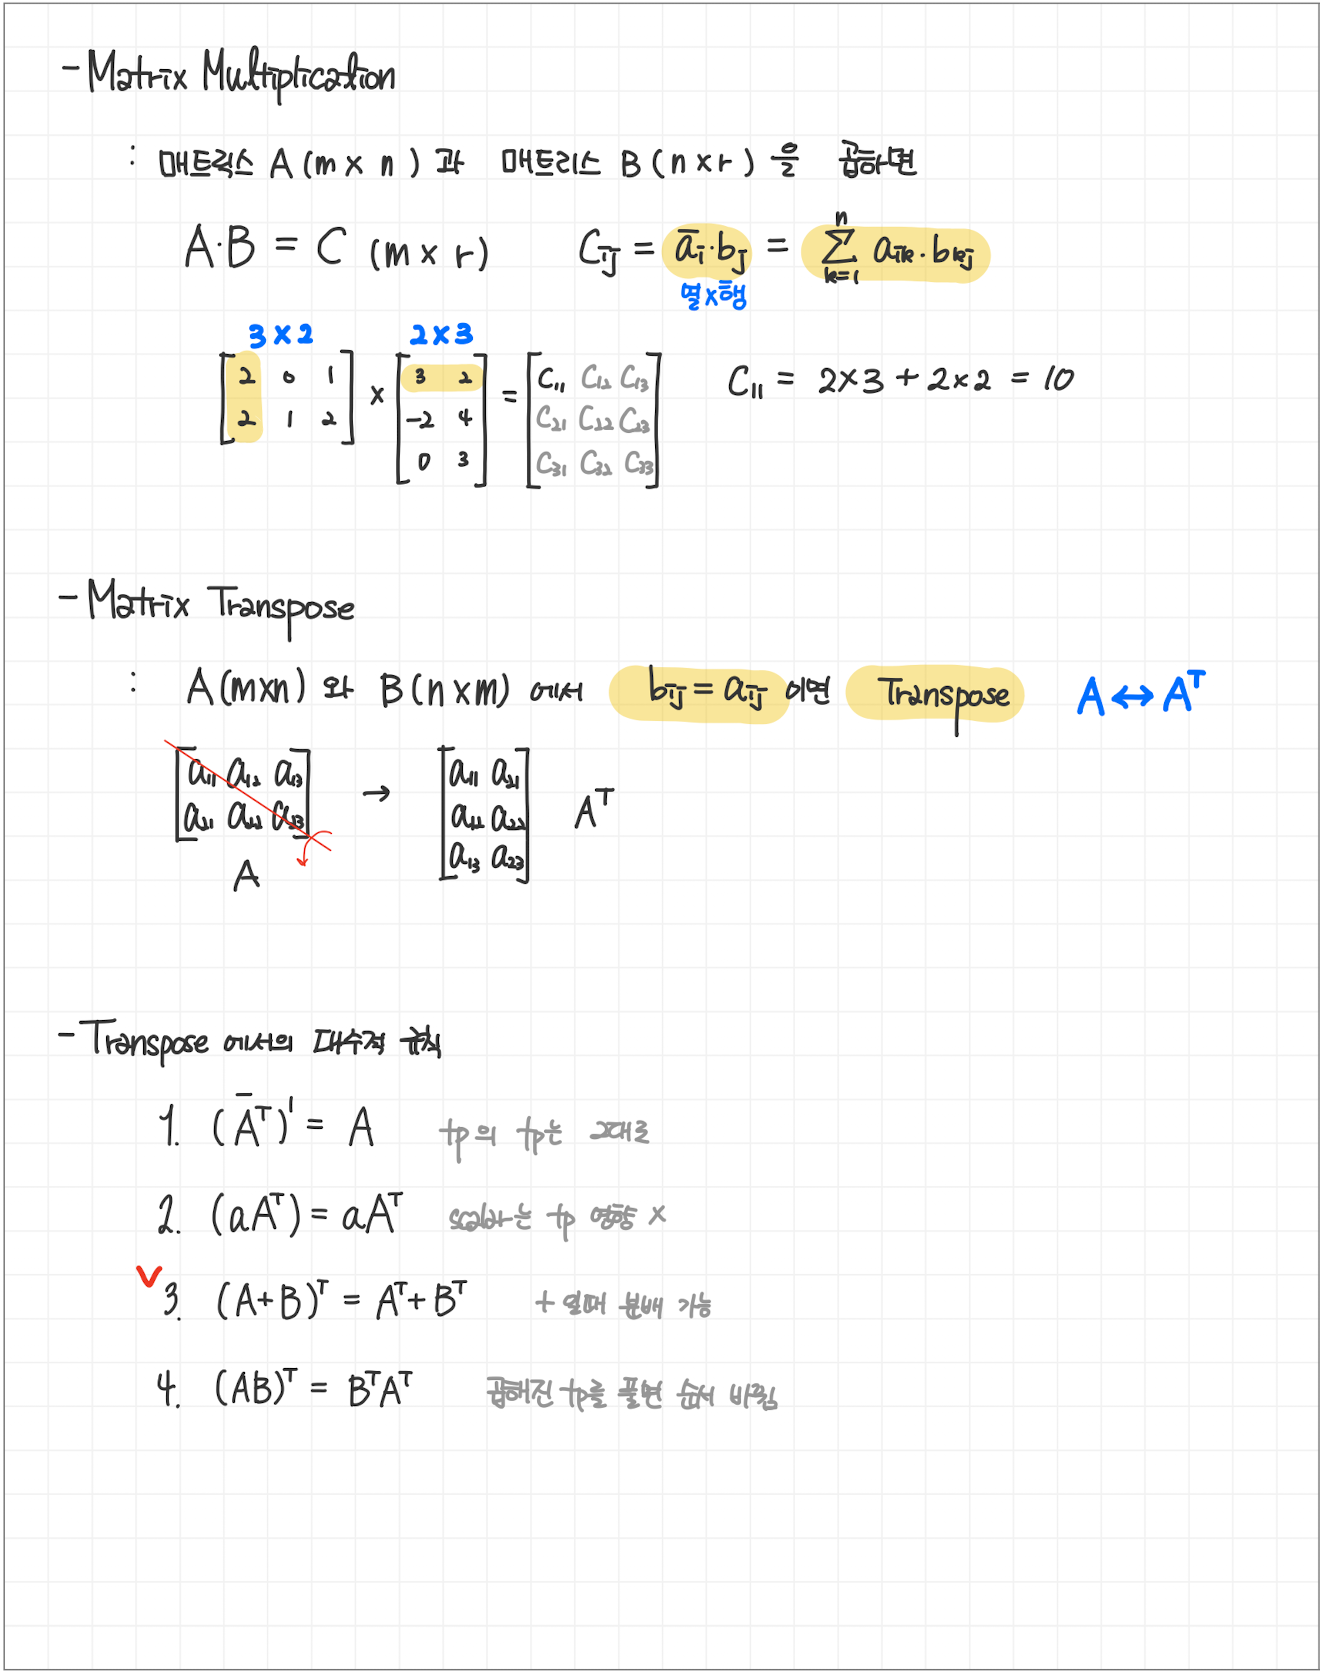 - Matrix Multiplication
: 매트릭스 A (m × n) 과 매트리스 B (n × r) 을 곱하면
A·B = C (m × r) C_ij = a̅_i · b_j = Σ_{k=1}^{n} a_ik · b_kj
열×행
3 × 2 2 × 3
[2 0 1] × [3 2] = [C₁₁ C₁₂ C₁₃] C₁₁ = 2×3 + 2×2 = 10
[2 1 2] [-2 4] [C₂₁ C₂₂ C₂₃]
[0 3] [C₃₁ C₃₂ C₃₃]
- Matrix Transpose
: A(m×n) 와 B(n×m) 에서 b_ij = a_ij 이면 Transpose A ↔ Aᵀ
[a₁₁ a₁₂ a₁₃] → [a₁₁ a₂₁] Aᵀ
[a₂₁ a₂₂ a₂₃] [a₁₂ a₂₂]
[a₁₃ a₂₃]
A
- Transpose 에서의 대수적 규칙
1. (A̅ᵀ)' = A tp의 tp는 그대로
2. (aAᵀ) = aAᵀ scalar는 tp 영향 x
v 3. (A+B)ᵀ = Aᵀ+Bᵀ + 일때 분배 가능
4. (AB)ᵀ = BᵀAᵀ 곱해진 tp를 풀면 순서 바뀜